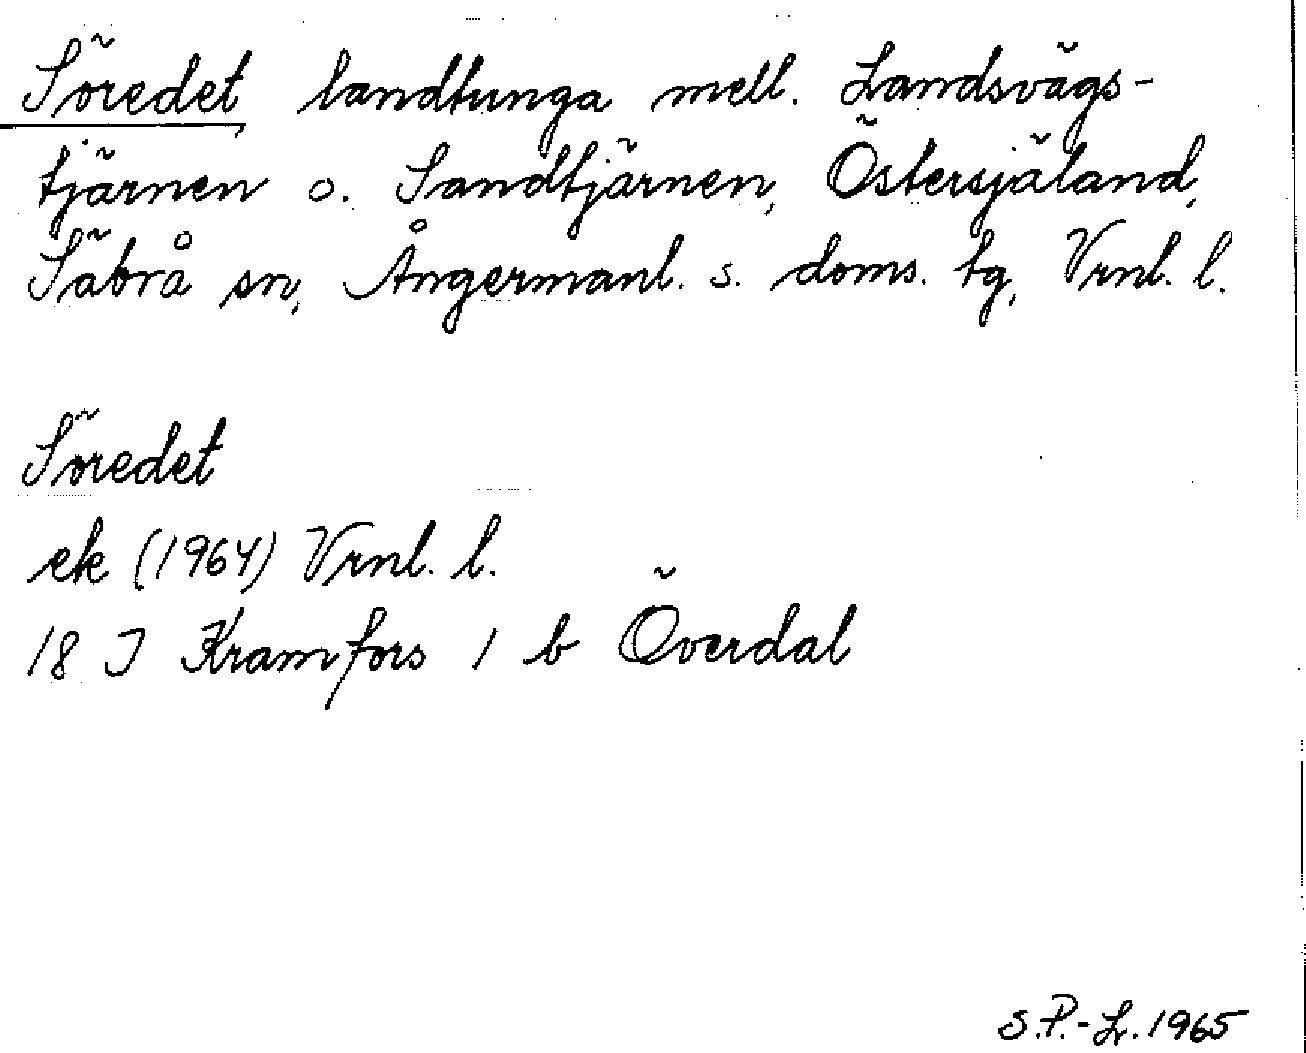 Söredet, landtunga mell. Landsvägs-
tjärnen o. Sandtjärnen, Östersjäland,
Säbrå sn, Ångermanl. s. doms. tg, Vrnl. l.
Söredet
ek (1964) Vrnl. l.
18 I Kramfors 1 b Överdal
S.P.-L. 1965